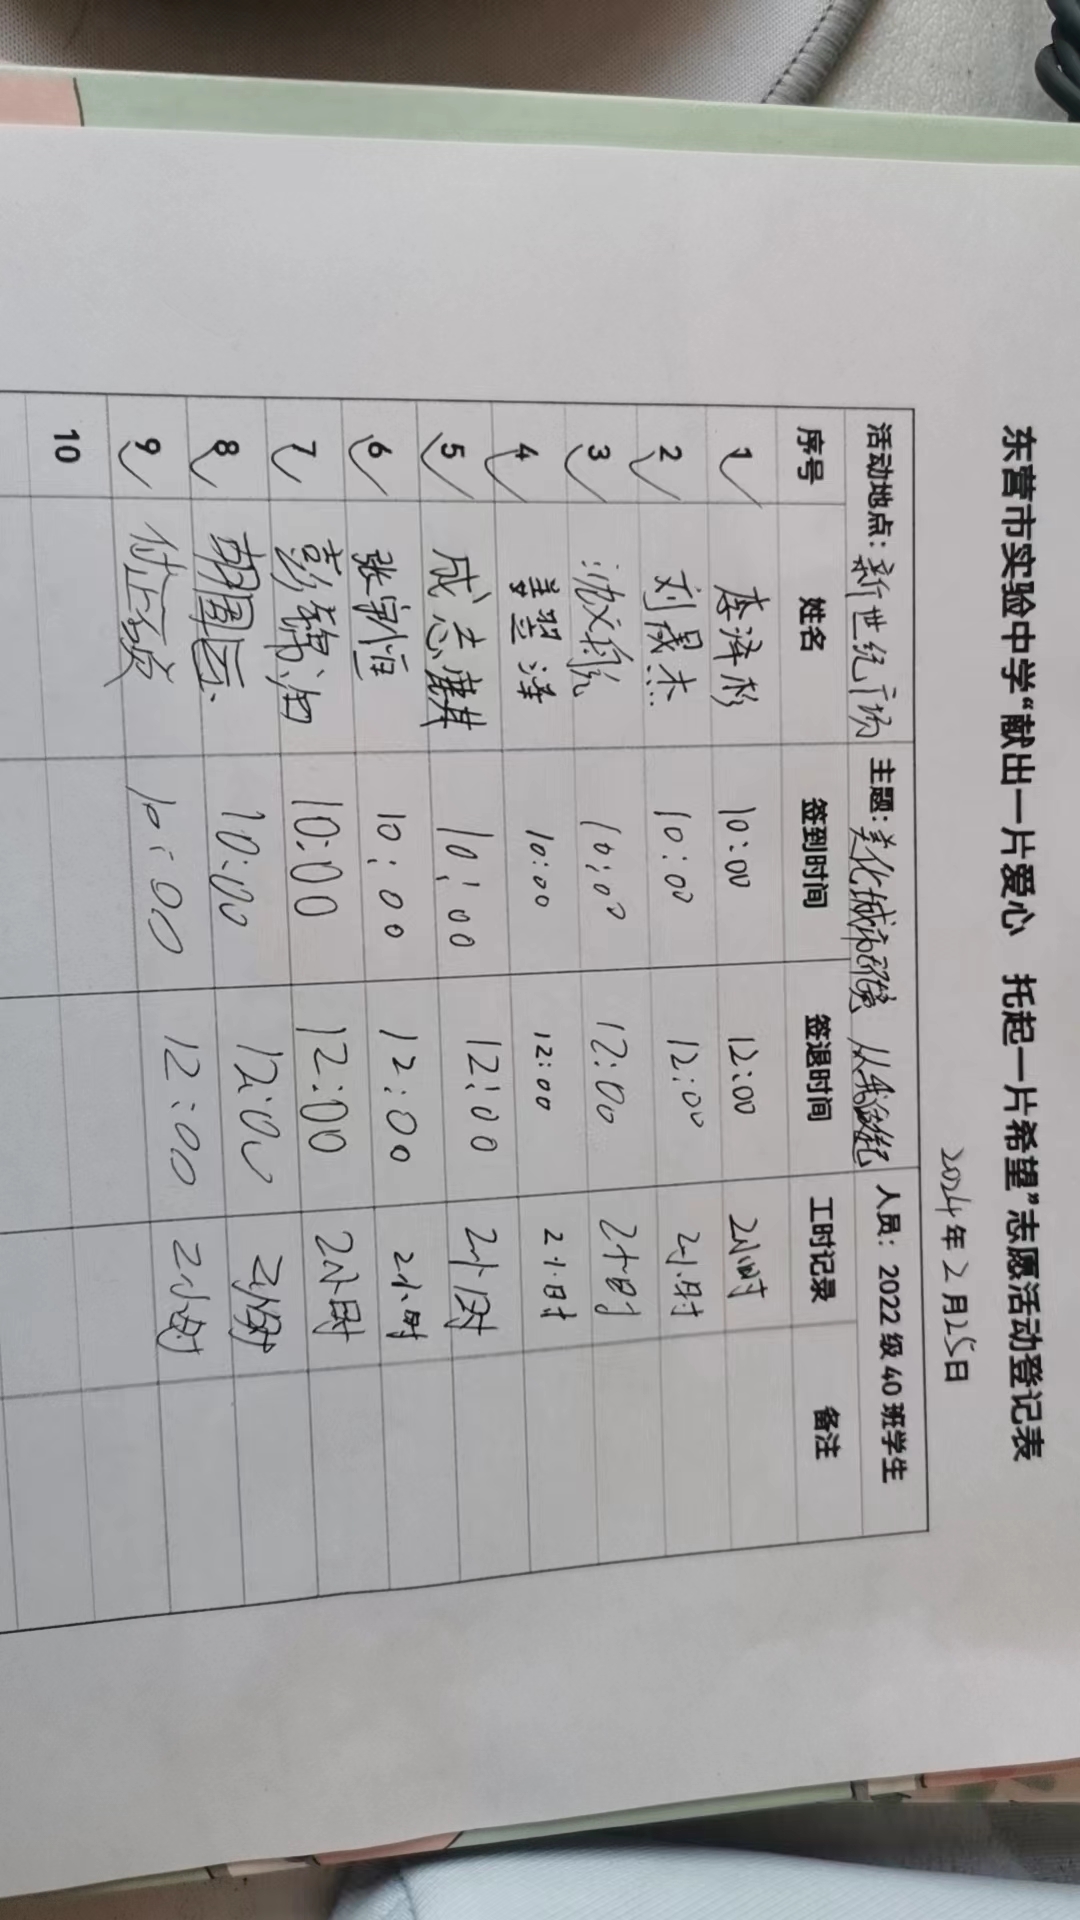 东营市实验中学“献出一片爱心 托起一片希望”志愿活动登记表
2024年2月25日
活动地点：新世纪广场 主题：美化城市环境 从我做起 人员：2022级40班学生
序号 姓名 签到时间 签退时间 工时记录 备注
1 李泽杉 10:00 12:00 2小时
2 刘晟杰 10:00 12:00 2小时
3 沈文 10:00 12:00 2小时
4 姜翌泽 10:00 12:00 2小时
5 成志麒 10:00 12:00 2小时
6 张新恒 10:00 12:00 2小时
7 彭锦 10:00 12:00 2小时
8 胡国运 10:00 12:00 2小时
9 10:00 12:00 2小时
10